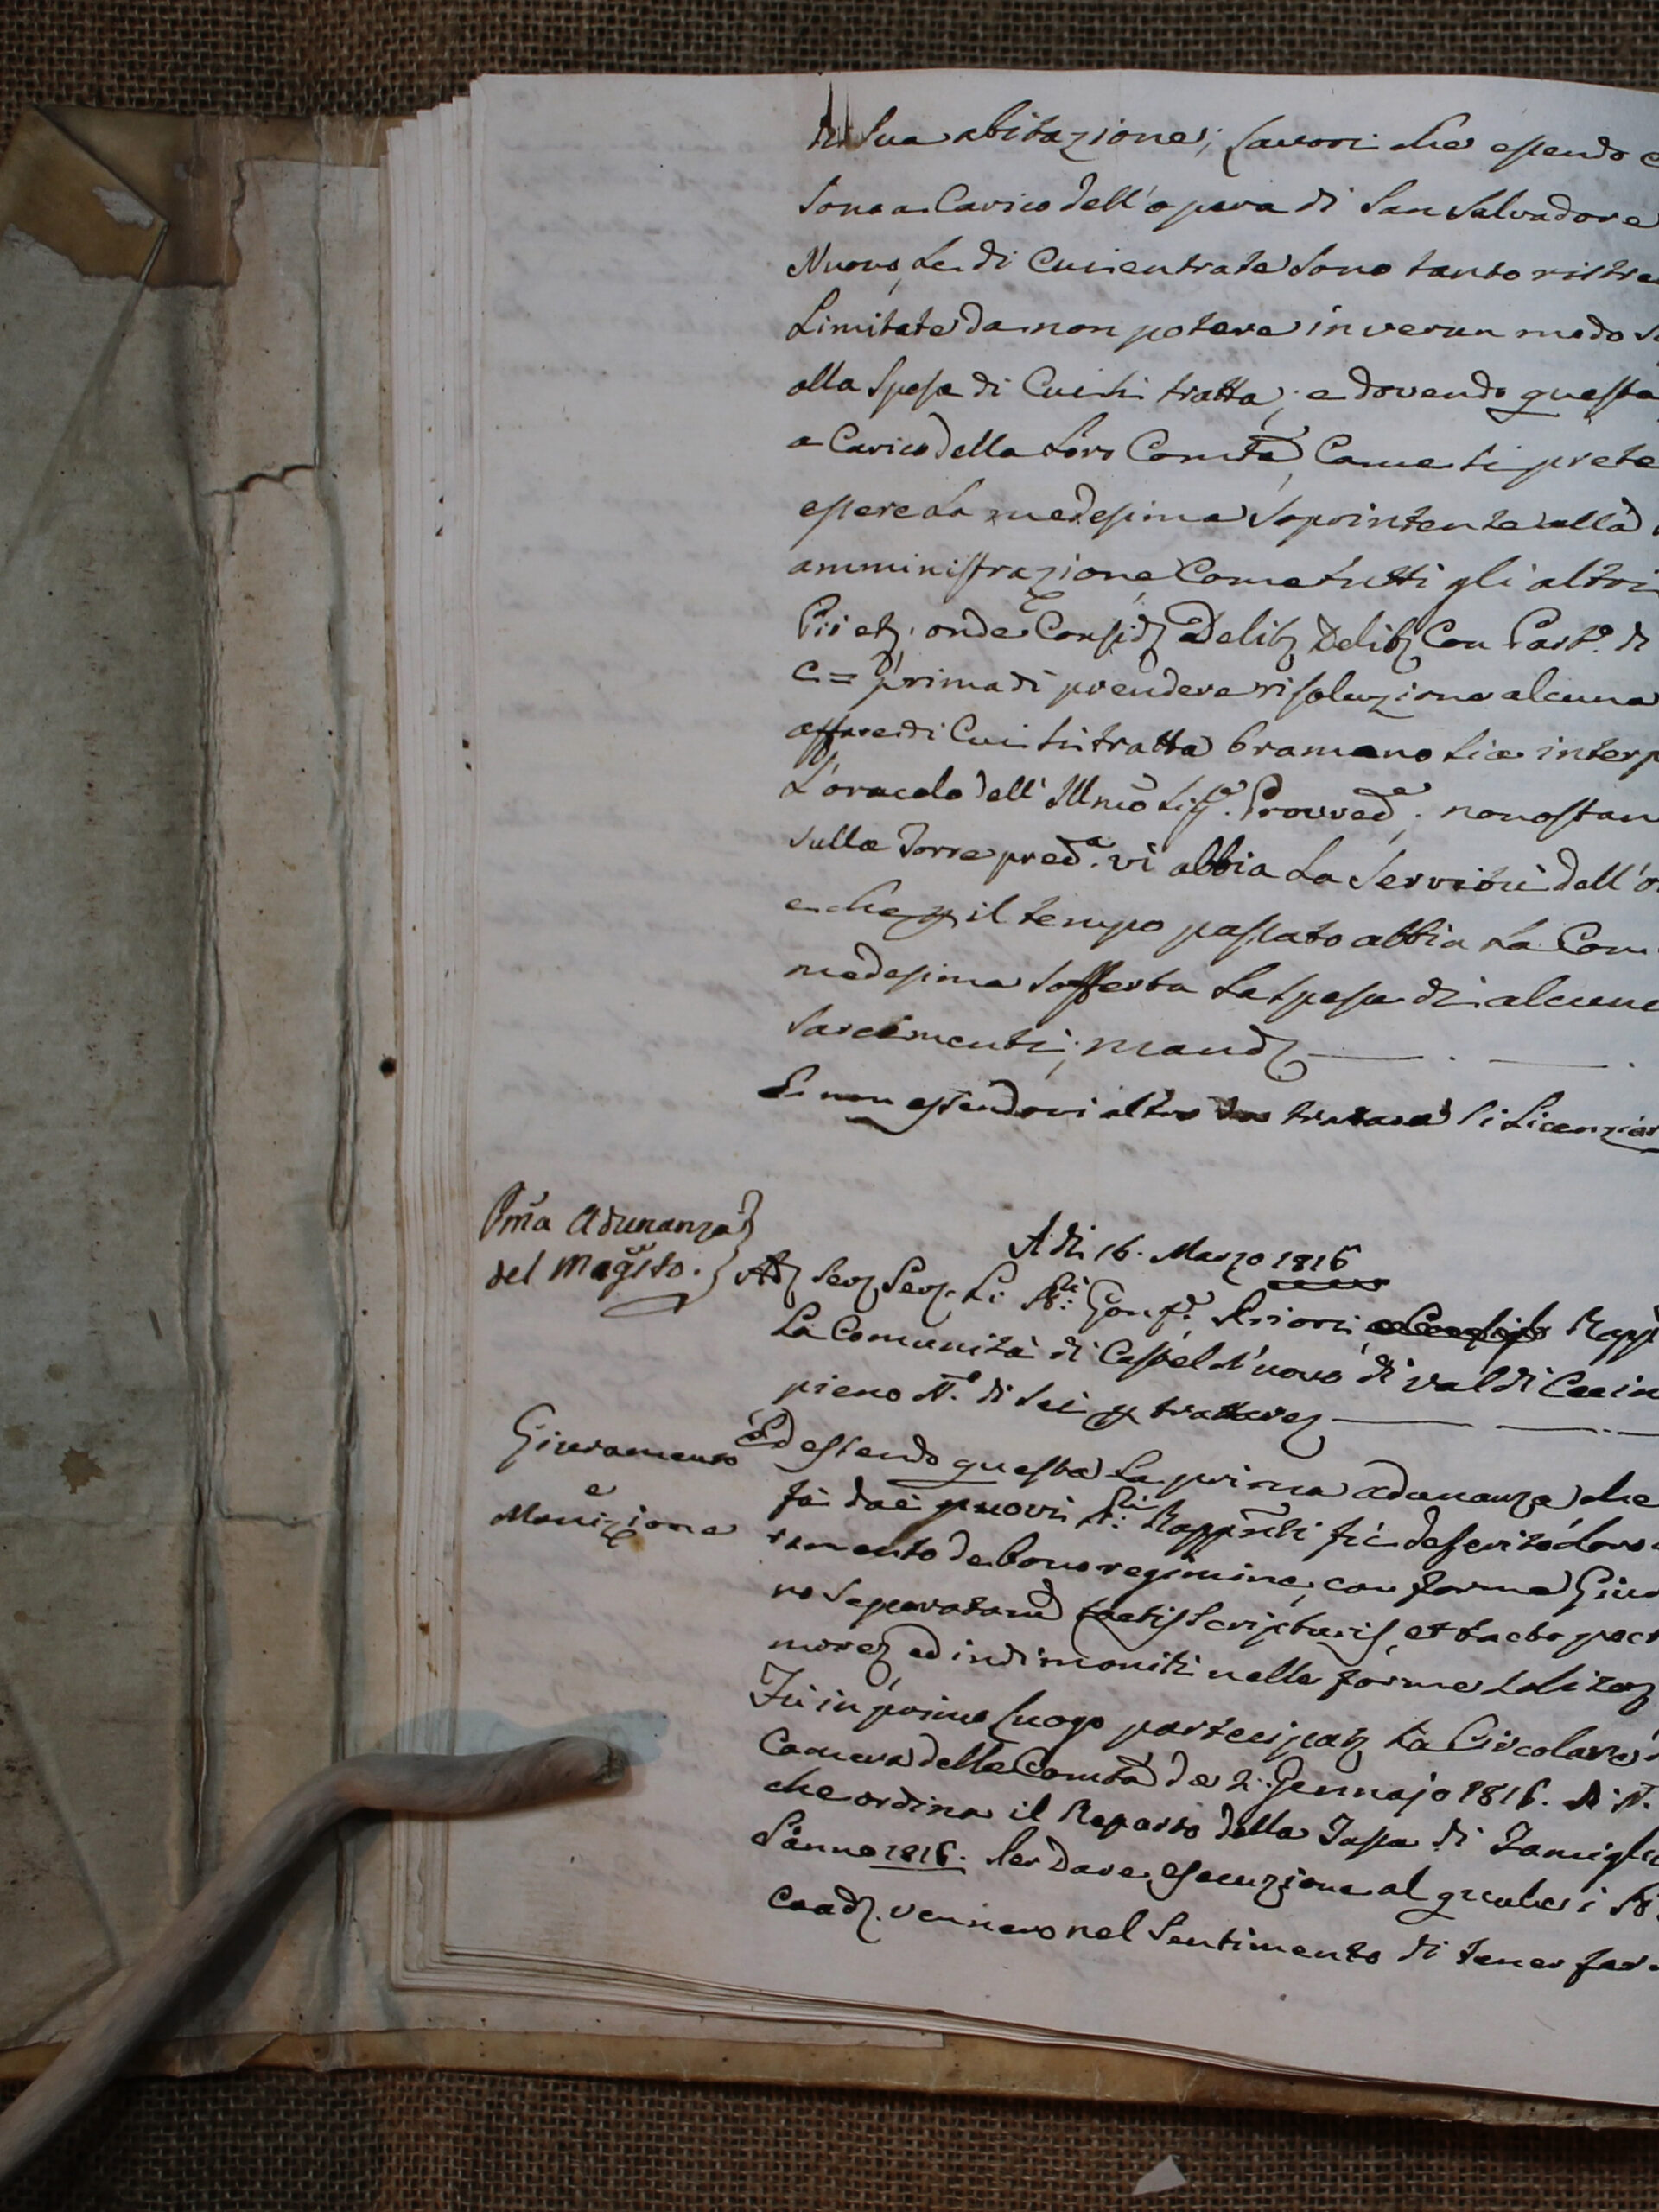 di Sua abitazione; Lavori che essendo
Sono a Carico dell'opera di San Salvadore
Nuovo, Le di Cui entrate Sono tanto ristre
Limitate da non potere in verun modo
alla Spesa di Cui si tratta; e dovendo questa
a Carico della Loro Comtà, Come si prete
essere La medesima Soprintente alla
amministrazione Come tutti gli altri
Pii etz. onde Considz Delibz Delibz Con Parto. di
C = prima di prendere risoluzione alcuna
affare di Cui si tratta bramano sia interp
L'oracolo dell'Illmo Sigre. Provvede; nonostan
sulla Torre preda. vi abbia La Servitù dell'o
e che p il tempo passato abbia La Com
medesima Sofferta La spesa di alcune
sarcimenti; mandz
E non essendovi altro da trattare si Licenziar
Pma Adunanza
del Magto.
A di 16. Marzo 1816
Adz Serz Serz. Li SSri: Gonfre. Priori, Rapp
La Comunità di Castel Nuovo di Val di Cecin
pieno No. di Sei p trattarez
Giuramento
e
Monizione
Ed essendo questa La prima adunanza che
fà dai nuovi SSri: Rappnti fù deferito Loro
ramento de bono regimine, conforme Giur
no Separatamte tactis Scripturis, et tacto pect
morez, ed indi moniti nelle forme Solitez
Fù in primo Luogo partecipatz La Circolare
Camera delle Comtà de 2. Gennajo 1816. di N.
che ordina il Reparto della Tassa di Famigli
L'anno 1816. Per dare esecuzione al quale i SS
Coadz. vennero nel Sentimento di tener fer